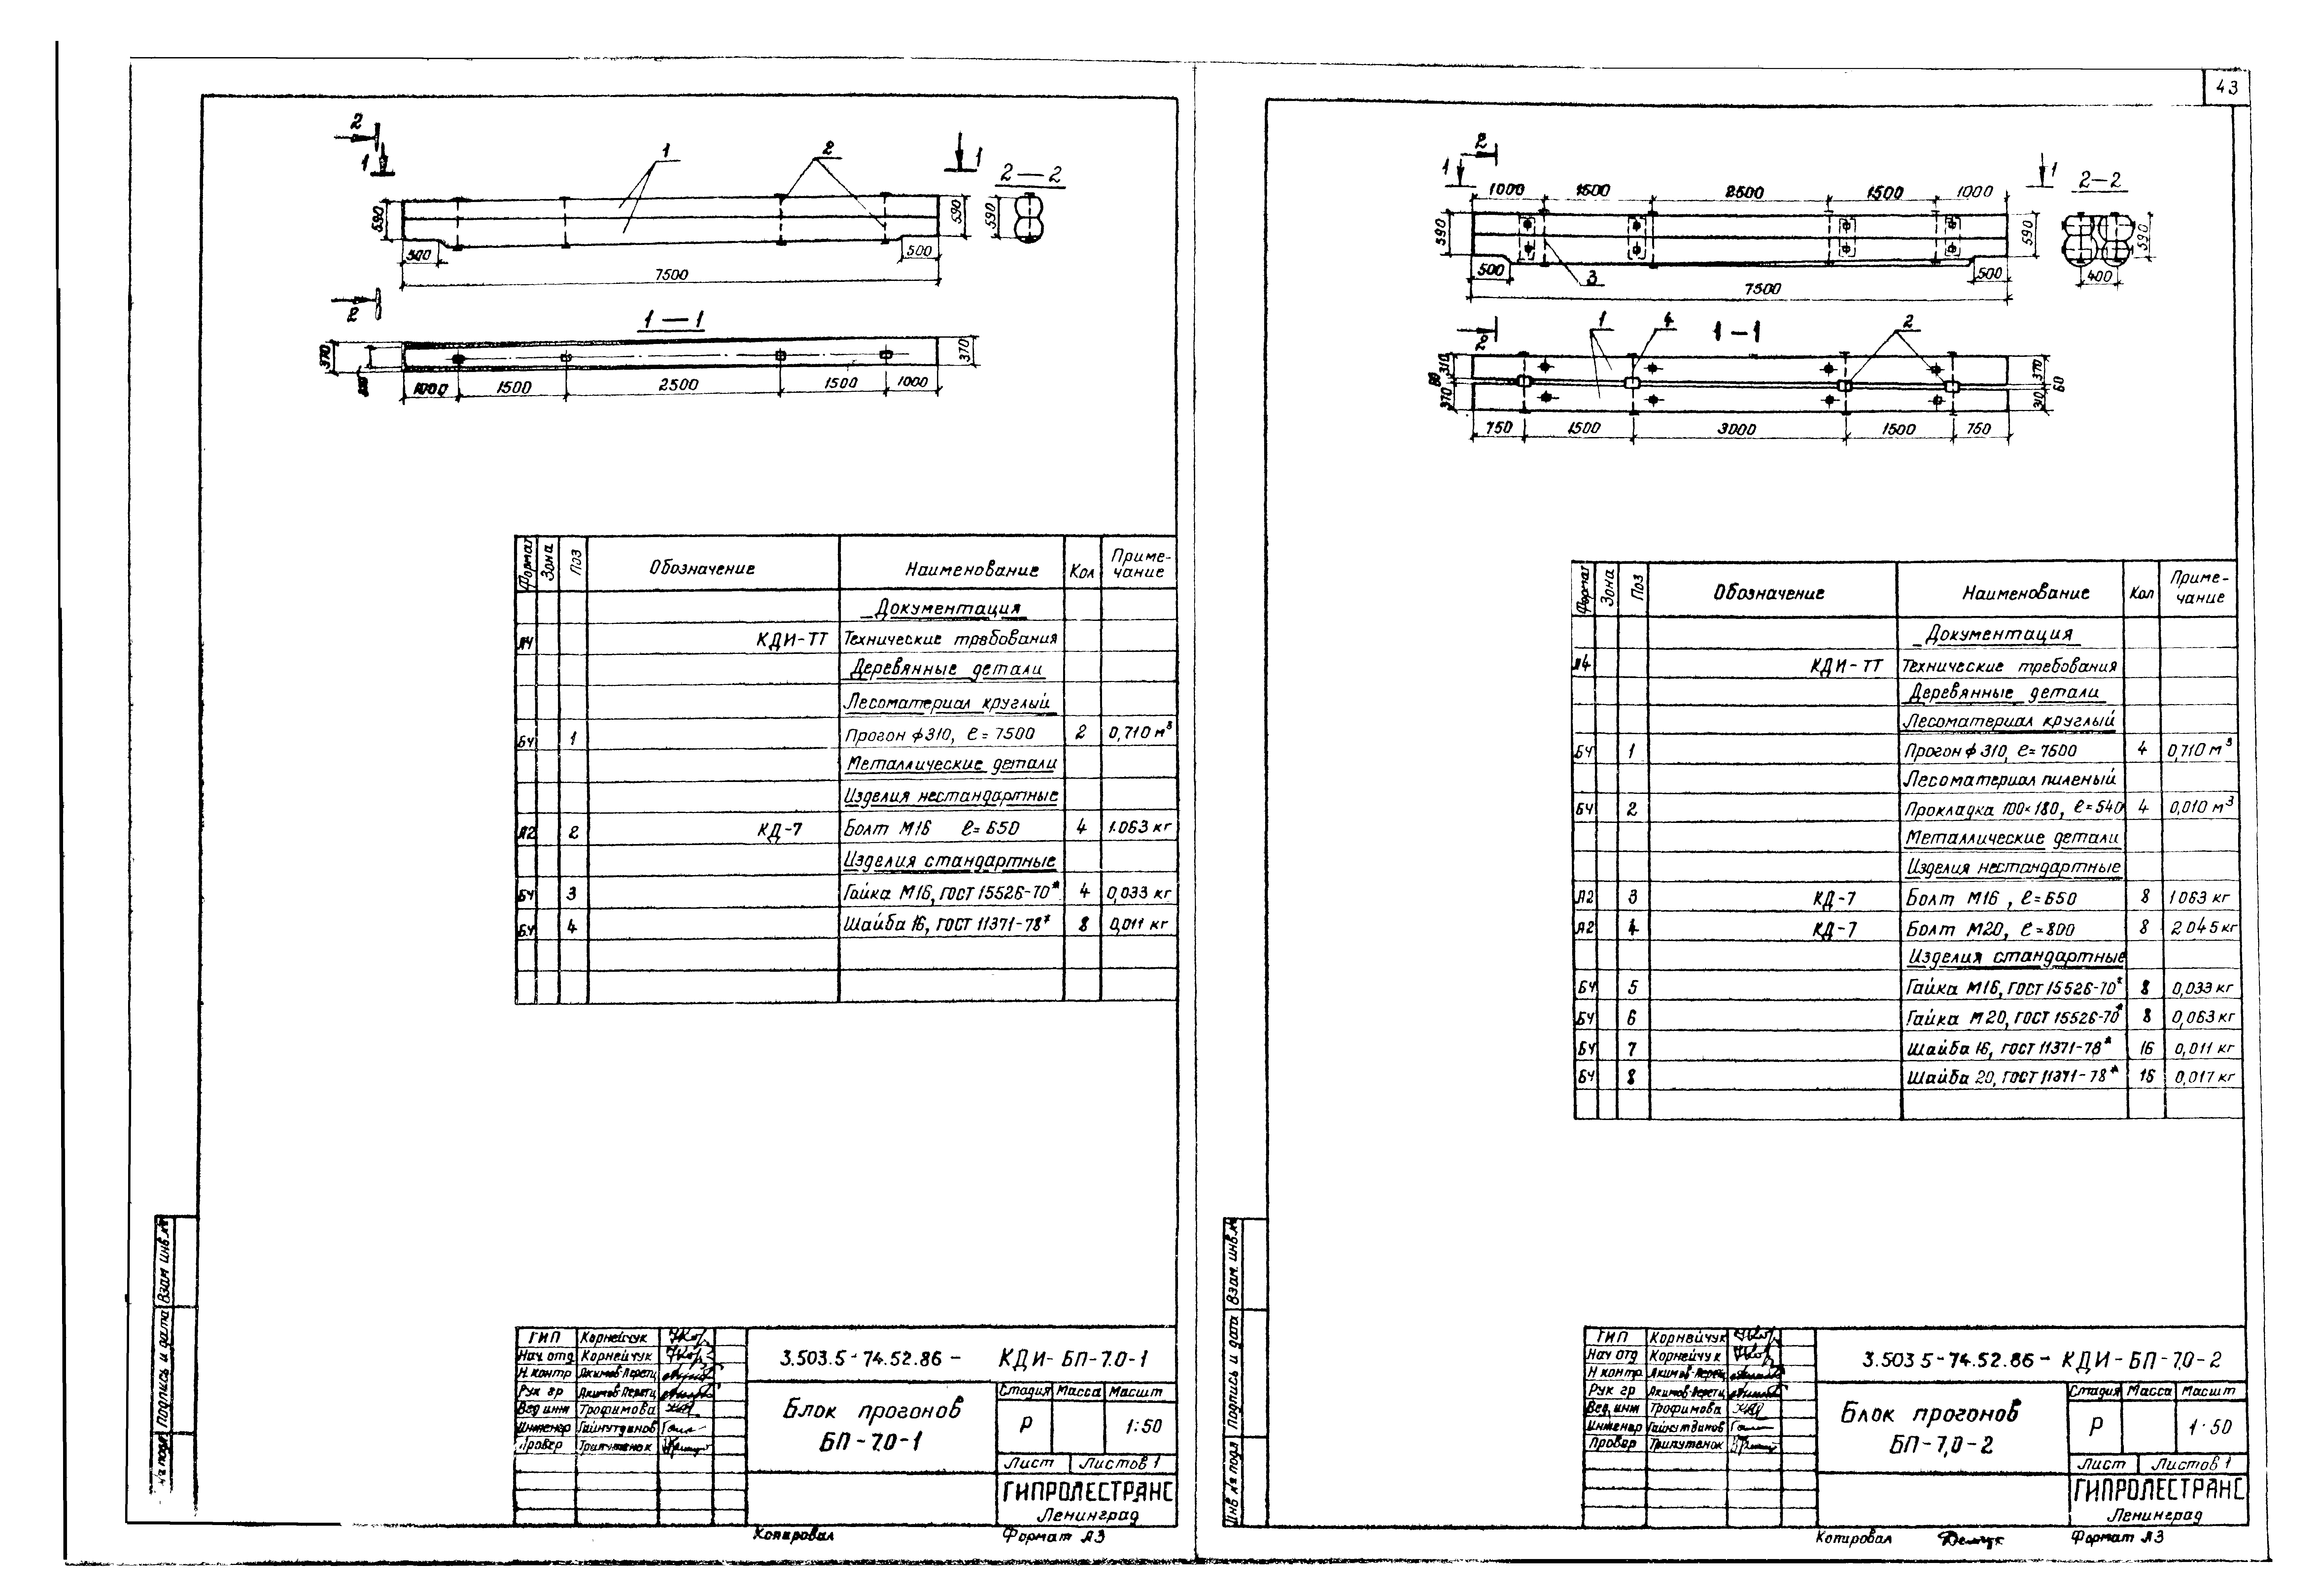 43
2
1
1
2
1
2—2
590
590
590
500
500
7500
2
1—1
370
370
1000
1500
2500
1500
1000
Формат
Зона
Поз
Обозначение
Наименование
Кол
Приме-
чание
Документация
А4 КДИ-ТТ Технические требования
Деревянные детали
Лесоматериал круглый
БЧ 1 Прогон ф310, ℓ=7500 2 0,710 м³
Металлические детали
Изделия нестандартные
А2 2 КД-7 Болт М16 ℓ=650 4 1.063 кг
Изделия стандартные
БЧ 3 Гайка М16, ГОСТ 15526-70* 4 0,033 кг
БЧ 4 Шайба 16, ГОСТ 11371-78* 8 0,011 кг
Взам инв.№
Подпись и дата
№ подл
ГИП Корнейчук
Нач отд Корнейчук
Н. контр Акимов-Перетц
Рук гр Акимов-Перетц
Вед инж Трофимова
Инженер Гайнутдинов
Провер Трипутенок
3.503.5-74.52.86- КДИ-БП-7.0-1
Блок прогонов
БП-7.0-1
Стадия Масса Масшт
Р 1:50
Лист Листов 1
ГИПРОЛЕСТРАНС
Ленинград
Копировал Формат А3
2
1
1
2—2
1000
1500
2500
1500
1000
590
590
590
500
500
3
7500
400
2
1
4
1-1
2
310
60
370
370
60
310
750
1500
3000
1500
750
Формат
Зона
Поз
Обозначение
Наименование
Кол
Приме-
чание
Документация
А4 КДИ-ТТ Технические требования
Деревянные детали
Лесоматериал круглый
БЧ 1 Прогон ф310, ℓ=7500 4 0,710 м³
Лесоматериал пиленый
БЧ 2 Прокладка 100×180, ℓ=540 4 0,010 м³
Металлические детали
Изделия нестандартные
А2 3 КД-7 Болт М16, ℓ=650 8 1 063 кг
А2 4 КД-7 Болт М20, ℓ=800 8 2 045 кг
Изделия стандартные
БЧ 5 Гайка М16, ГОСТ 15526-70* 8 0,033 кг
БЧ 6 Гайка М20, ГОСТ 15526-70* 8 0,063 кг
БЧ 7 Шайба 16, ГОСТ 11371-78* 16 0,011 кг
БЧ 8 Шайба 20, ГОСТ 11371-78* 16 0,017 кг
Взам. инв.№
Подпись и дата
Инв № подл
ГИП Корнейчук
Нач отд Корнейчук
Н контр Акимов-Перетц
Рук гр Акимов-Перетц
Вед. инж Трофимова
Инженер Гайнутдинов
Провер Трипутенок
3.503 5-74.52.86-КДИ-БП-7.0-2
Блок прогонов
БП-7,0-2
Стадия Масса Масшт
Р 1 50
Лист Листов 1
ГИПРОЛЕСТРАНС
Ленинград
Копировал Формат А3